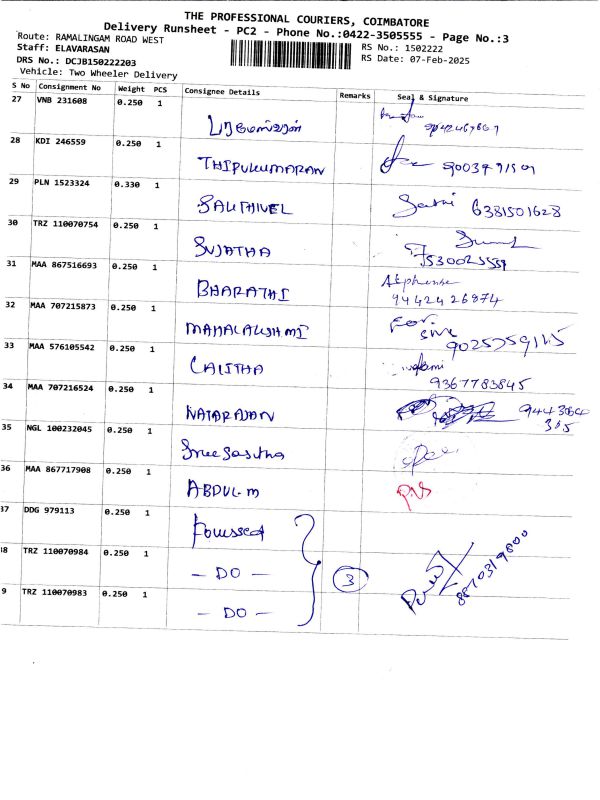 THE PROFESSIONAL COURIERS, COIMBATORE
Delivery Runsheet - PC2 - Phone No.:0422-3505555 - Page No.:3
Route: RAMALINGAM ROAD WEST
Staff: ELAVARASAN
RS No.: 1502222
DRS No.: DCJB150222203
RS Date: 07-Feb-2025
Vehicle: Two Wheeler Delivery
S No Consignment No Weight PCS Consignee Details Remarks Seal & Signature
27 VNB 231608 0.250 1
28 KDI 246559 0.250 1 THIPUKUMARAN
29 PLN 1523324 0.330 1 SAUTHIVEL 6381501628
30 TRZ 110070754 0.250 1 SUJATHA
31 MAA 867516693 0.250 1 BHARATHI
9442426874
32 MAA 707215873 0.250 1 MAHALAKSHMI For
33 MAA 576105542 0.250 1 LALITHA
9367783845
34 MAA 707216524 0.250 1 NATARAJAN
35 NGL 100232045 0.250 1
36 MAA 867717908 0.250 1 ABDUL.M
37 DDG 979113 0.250 1
38 TRZ 110070984 0.250 1 - DO - 3 8870319800
9 TRZ 110070983 0.250 1 - DO -